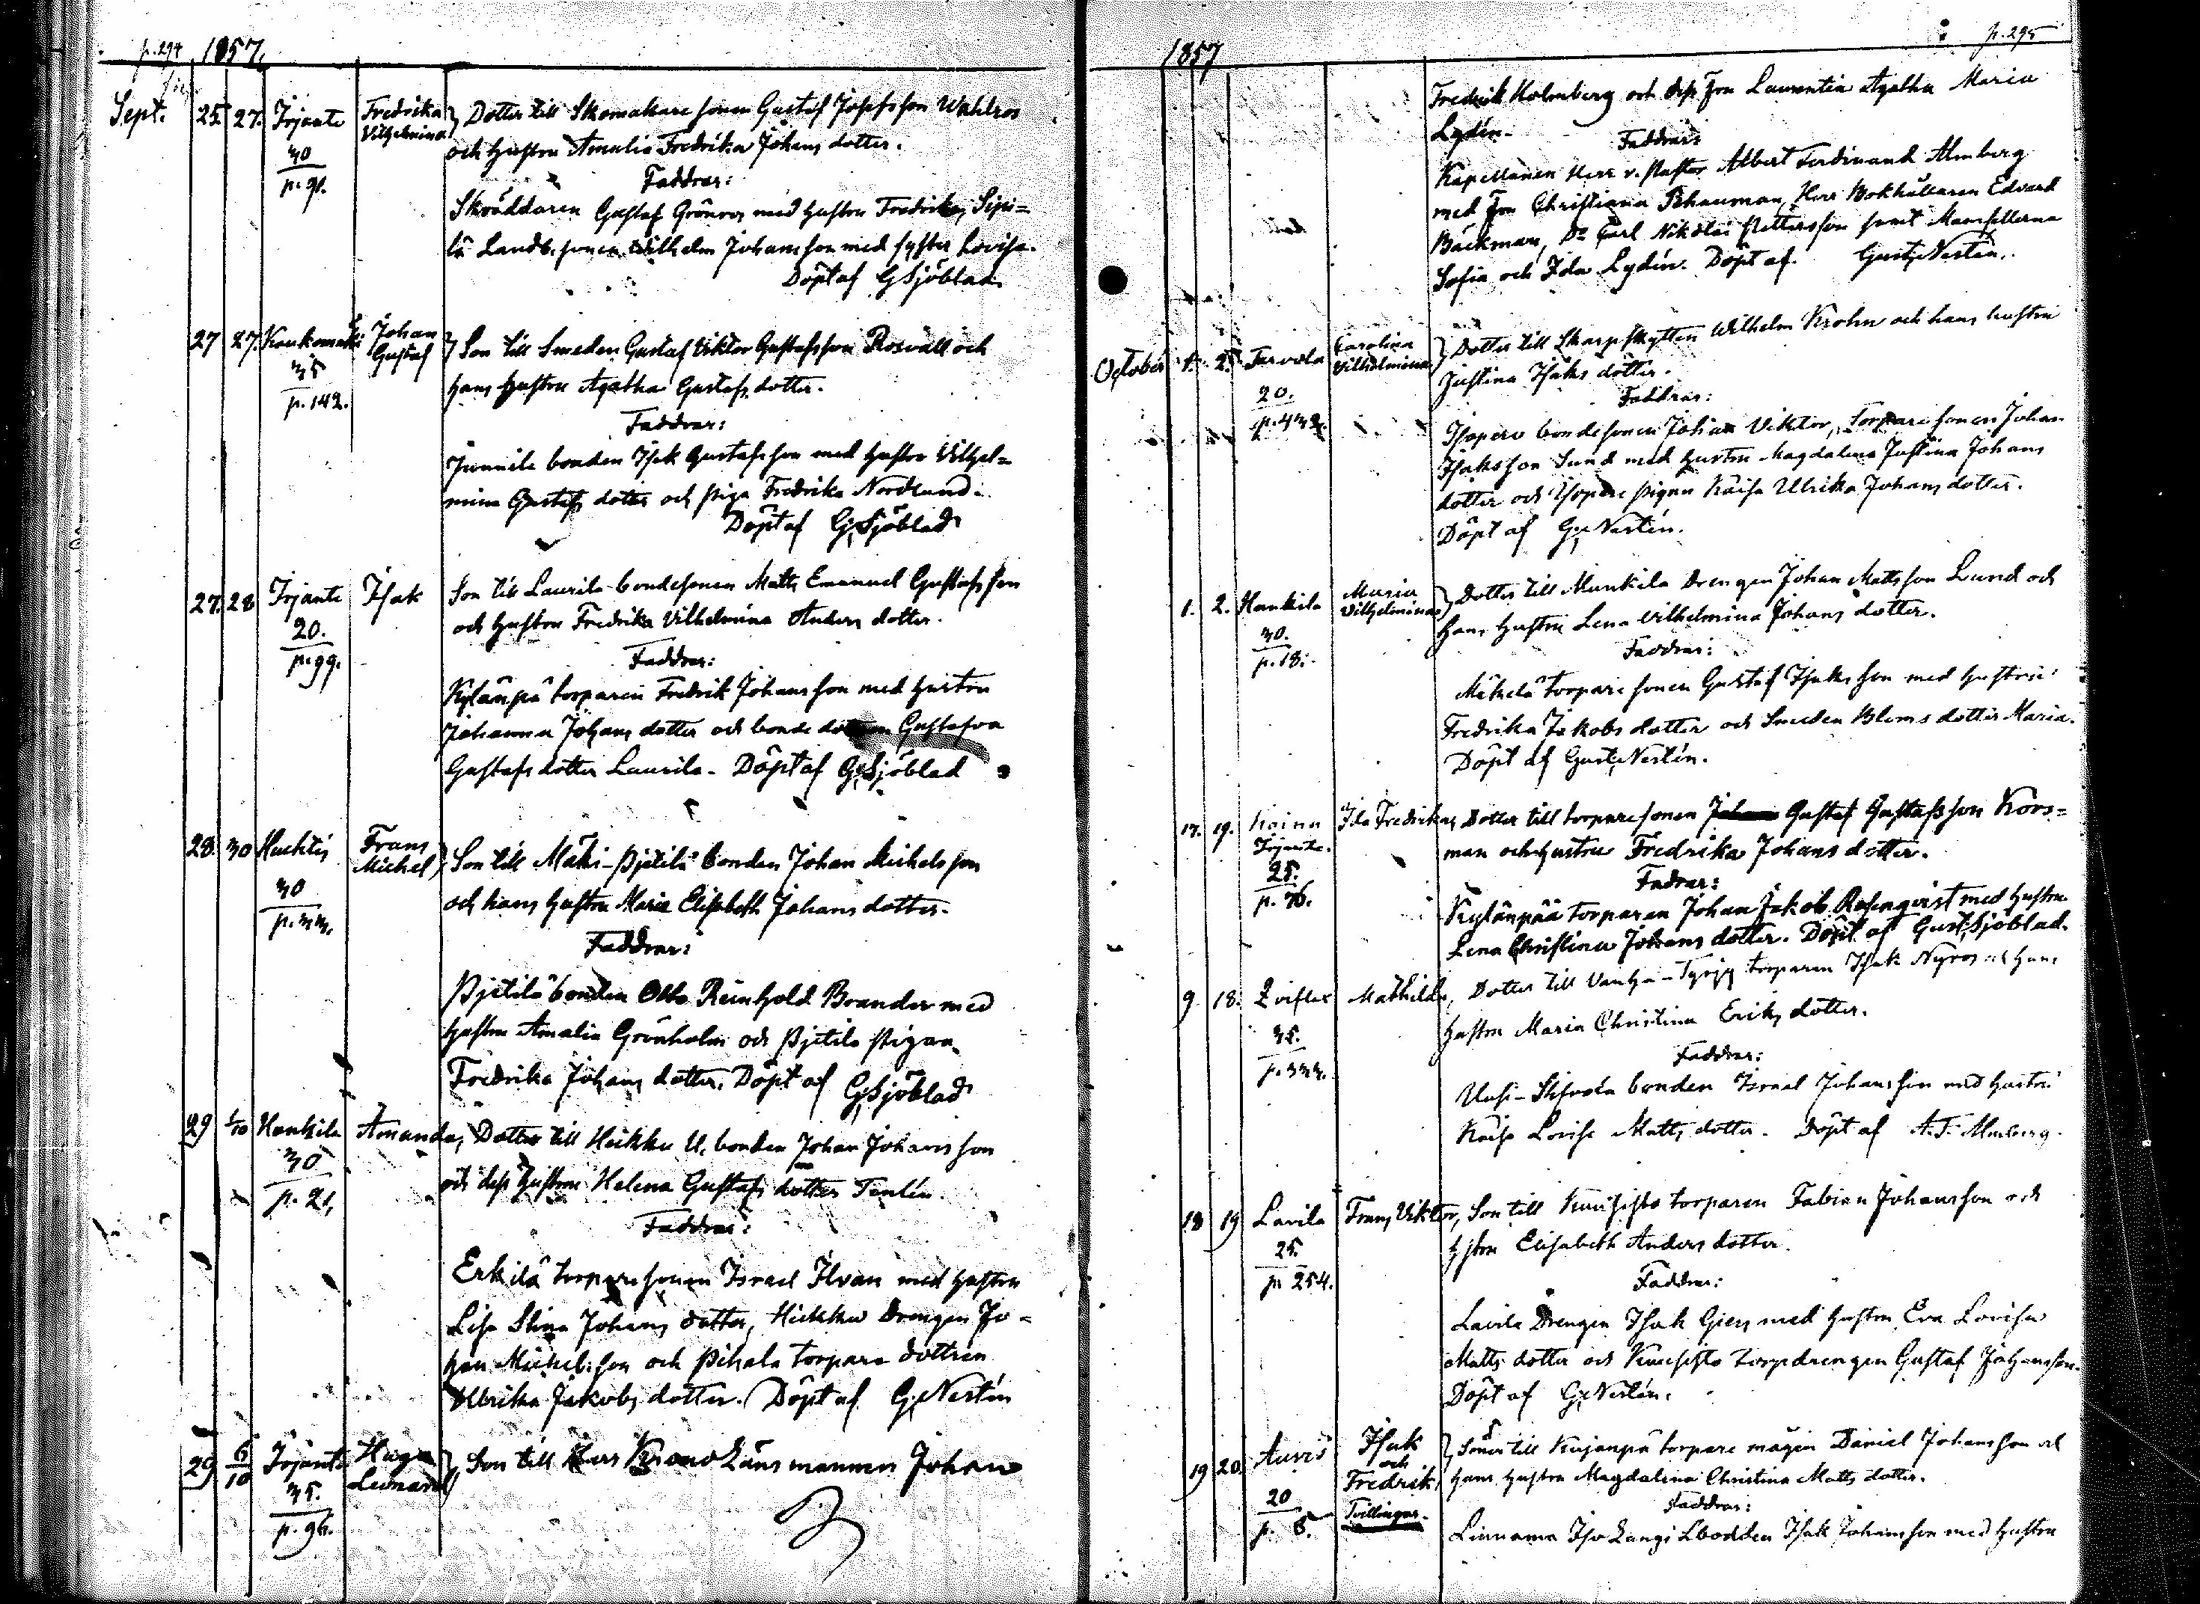 p. 294 1857.
Sept. 25. 27. Irjante Fredrika Dotter till Skomakare sonen Gustaf Josefsson Wahlros
Vilhelmina
30 och hustru Amalia Fredrika Johans dotter.
p. 91. Faddrar:
Skräddaren Gustaf Grönros med hustru Fredrika, Sipi=
lä Landb. sonen Wilhelm Johansson med syster Lovisa.
Döpt af G. Sjöblad
27 27. Kaukomäki Johan Son till Smeden Gustaf Viktor Gustafsson Rosvall och
Gustaf
35 hans hustru Agatha Gustafs dotter.
p. 142. Faddrar:
Junnila bonden Isak Gustafsson med hustru Vilhel=
mina Gustafs dotter och piga Fredrika Nordlund.
Döpt af G. Sjöblad
27. 28 Irjante Isak Son till Laurila bondesonen Matts Emanuel Gustafsson
20. och hustru Fredrika Vilhelmina Anders dotter.
p. 99. Faddrar:
Kylänpä torparen Fredrik Johansson med hustru
Johanna Johans dotter och bonde Gustafva
Gustafs dotter Laurila. Döpt af G. Sjöblad
28 30 Huhtis Frans Son till Mäki-Pjetilä bonden Johan Michelsson
Michel
30 och hans hustru Maria Elisabeth Johans dotter.
p. 33. Faddrar:
Pjetilä bonden Otto Reinhold Brander med
hustru Amalia Grönholm och Pjetilä pigan
Fredrika Johans dotter. Döpt af G. Sjöblad
29 1/10 Hankila Amanda, Dotter till Heikku U. bonden Johan Johansson
30 och dess hustru Helena Gustafs dotter Tenlén.
p. 21, Faddrar:
Erkilä torparesonen Israel Ilvan med hustru
Lisa Stina Johans dotter, Heikku Drengen Jo-
han Michelsson och Pihala torpare dottren
Ulrika Jakobs dotter. Döpt af G. Nestén
29 6/10 Irjante Hugo Son till Herr Krono Länsmannen Johan
Leonard
35.
p. 96.
1857 p. 295
Fredrik Holmberg och dess Fru Laurentia Agatha Maria
Lydén. Faddrar:
Kapellanen Herr v. Pastor Albert Ferdinand Almberg
med Fru Christiana Schauman, Herr Bokhållaren Edvard
Bäckman, Do Carl Nikolai Pettersson samt Mamsellerna
Sofia och Ida Lydén. Döpt af Gust. Nestén.
October 1. 2. Tarvola Carolina Dotter till Skarpskytten Wilhelm Krohn och hans hustru
Vilhelmina
20. Justina Isaks dotter.
p. 432. Faddrar:
Isopere bondesonen Johan Viktor, Torparesonen Johan
Isaksson Sund med hustru Magdalena Justina Johans
dotter och Isopere pigan Kaisa Ulrika Johans dotter.
Döpt af G. Nestén.
1. 2. Hankila Maria Dotter till Mankila Drengen Johan Mattsson Lund och
Vilhelmina
30. hans hustru Lena Wilhelmina Johans dotter.
p. 18. Faddrar:
Mäkelä torpare sonen Gustaf Isaksson med hustru
Fredrika Jakobs dotter och Smeden Bloms dotter Maria.
Döpt af Gust. Nestén.
17. 19. Koina Ida Fredrika, Dotter till torparesonen Gustaf Gustafsson Kors=
Irjante.
25. man och hustru Fredrika Johans dotter.
p. 76. Fadrar:
Kylänpää torparen Johan Jakob Rosenqvist med hustru
Lena Christina Johans dotter. Döpt af Gust. Sjöblad.
9. 18. Mathilda, Dotter till torparen Isak Nyros och hans
35. hustru Maria Christina Eriks dotter.
p. 333. Faddrar:
bonden Israel Johansson med hustru
Kaisa Lovisa Matts dotter. Döpt af A. F. Almberg.
18 19 Lavila Frans Viktor, Son till Kuusisto torparen Fabian Johansson och
25. hstru Elisabeth Anders dotter.
p 254. Faddrar:
Lavila Drengen Isak Giers med hustru Eva Lovisa
Matts dotter och Kuusisto torpdrengen Gustaf Johansson.
Döpt af G. Nestén.
19 20. Auvis Isak Söner till Kujanpä torpare mågen Daniel Johansson och
och
20 Fredrik, hans hustru Magdalena Christina Matts dotter.
p. 8. Tvillingar. Faddrar:
Linnama Iso Isak Johansson med hustru